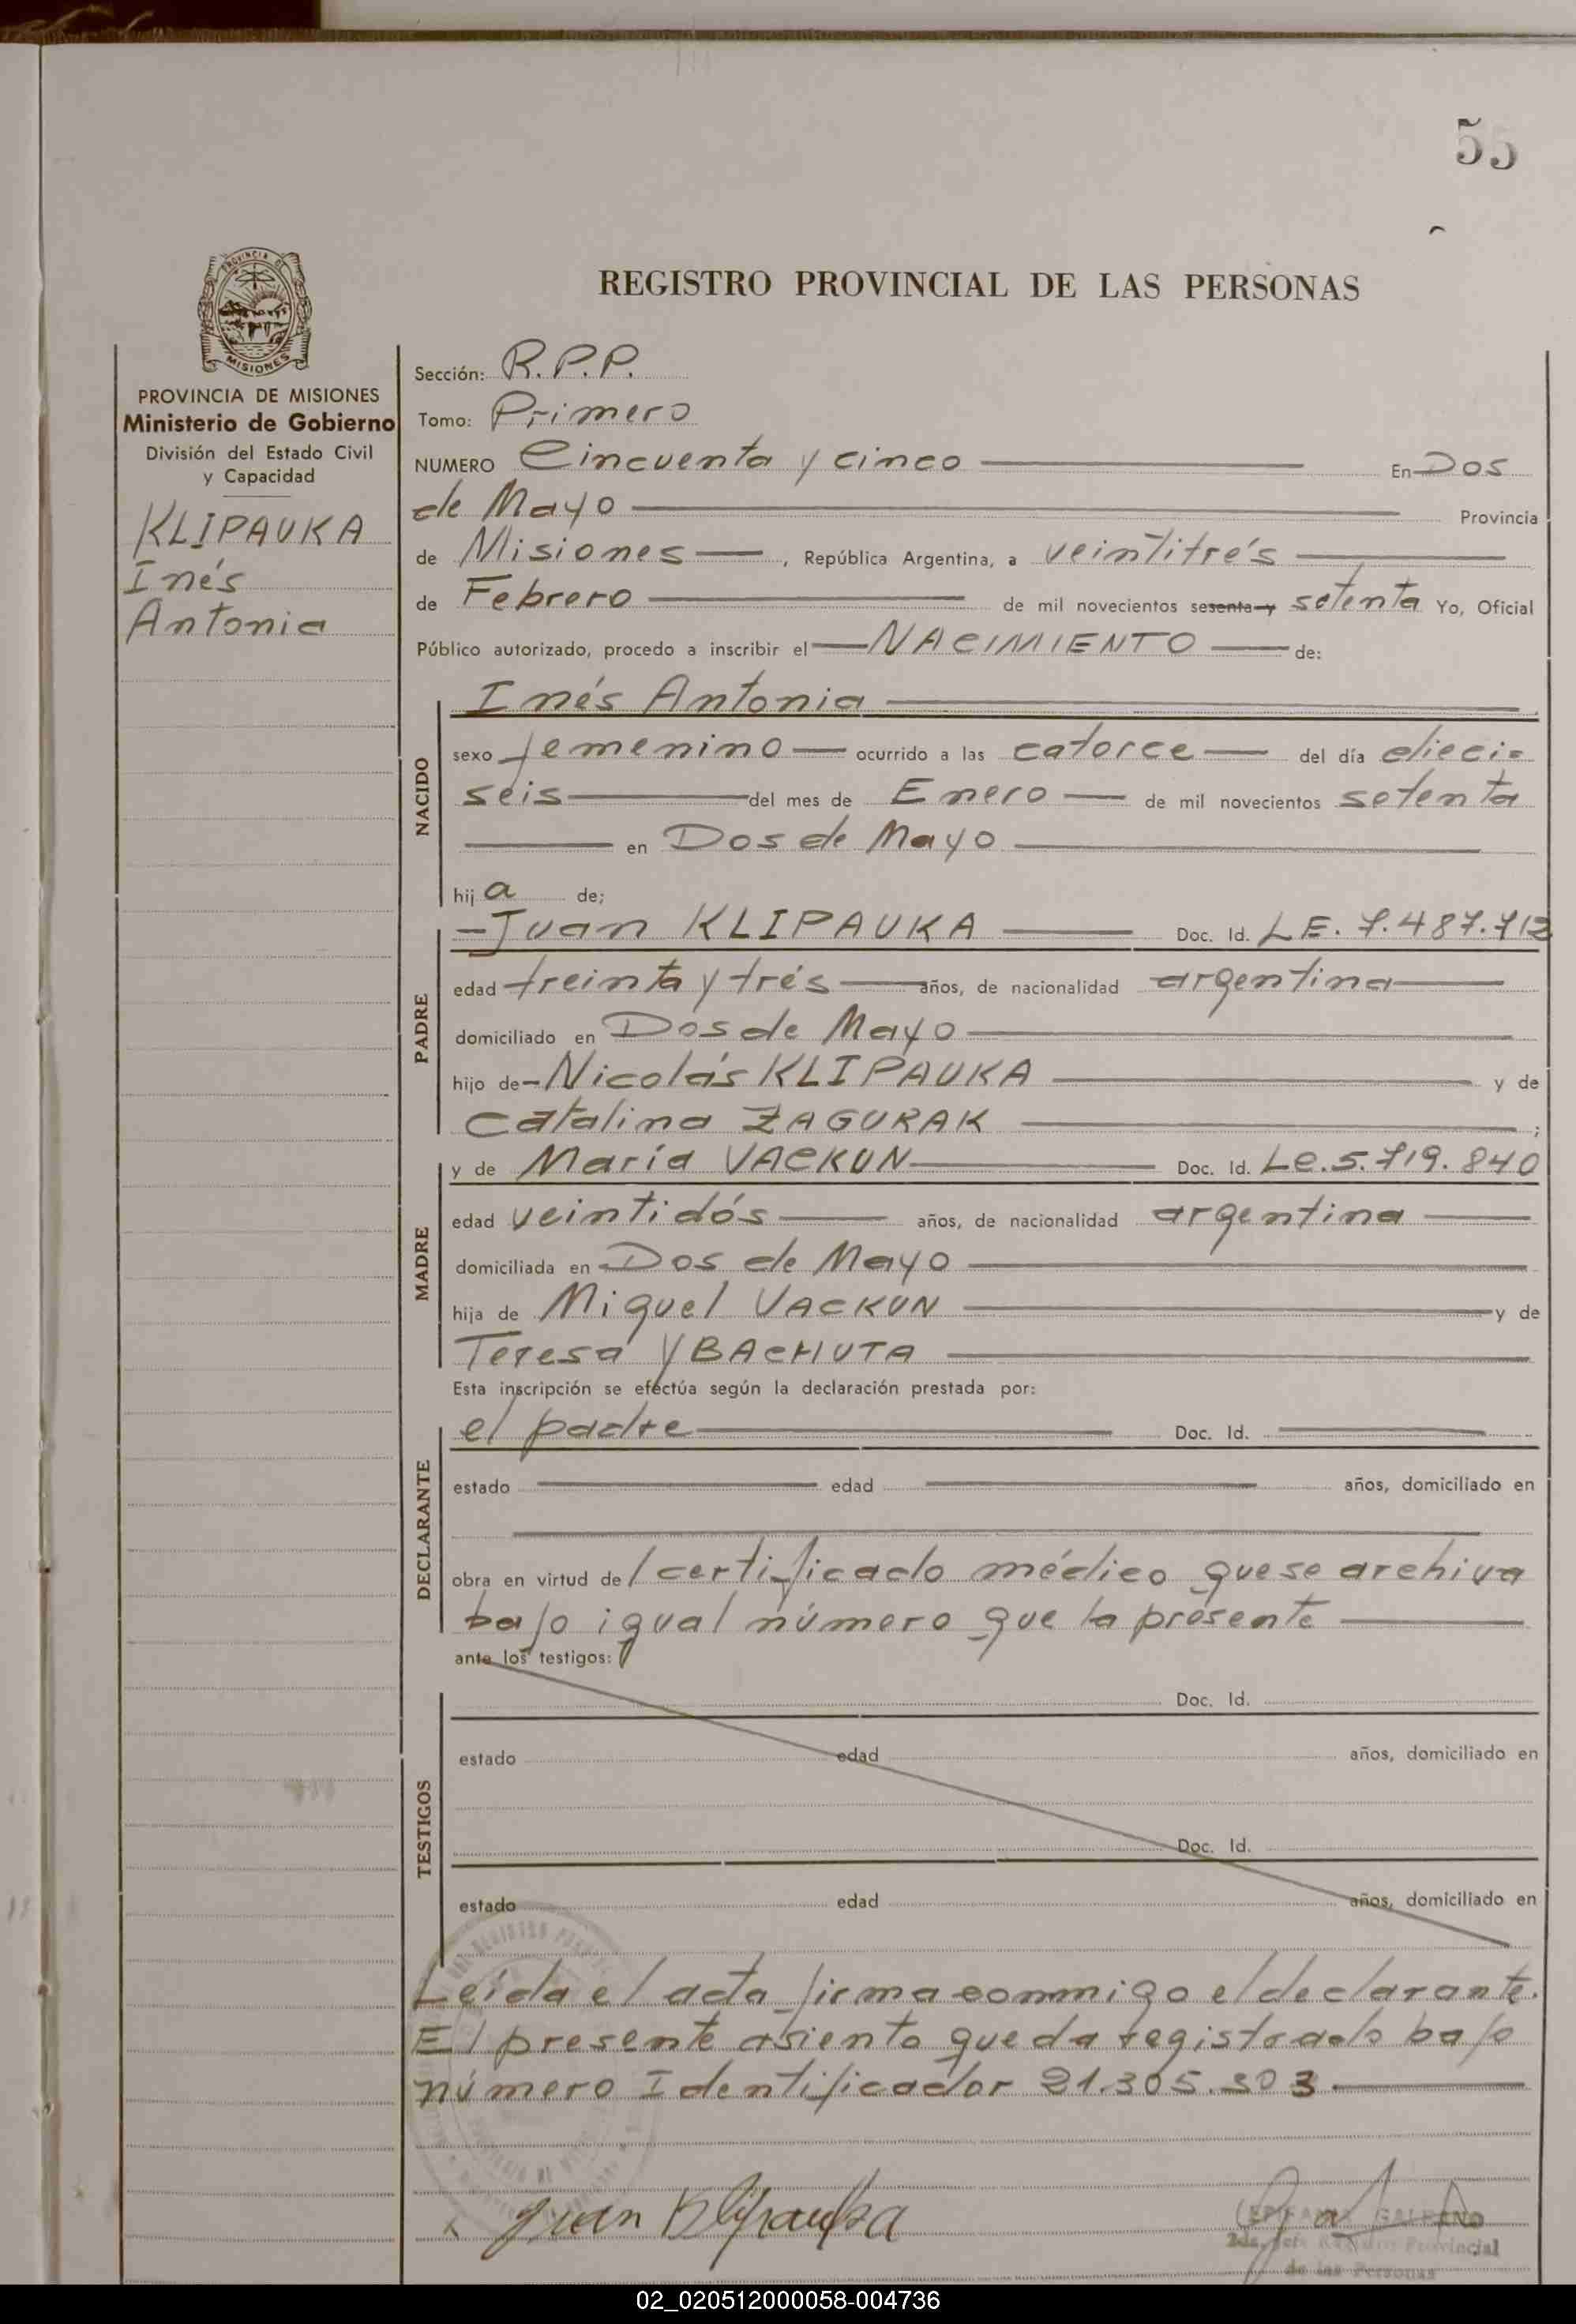 55
REGISTRO PROVINCIAL DE LAS PERSONAS
PROVINCIA DE
MISIONES
PROVINCIA DE MISIONES
Ministerio de Gobierno
División del Estado Civil
y Capacidad
KLIPAUKA
Inés
Antonia
Sección: R.P.P.
Tomo: Primero
NUMERO Cincuenta y cinco En Dos
de Mayo Provincia
de Misiones, República Argentina, a veintitrés
de Febrero de mil novecientos sesenta y setenta Yo, Oficial
Público autorizado, procedo a inscribir el NACIMIENTO de:
NACIDO
Inés Antonia
sexo femenino ocurrido a las catorce del día dieci=
seis del mes de Enero de mil novecientos setenta
en Dos de Mayo
hij a de;
PADRE
Juan KLIPAUKA Doc. Id. L.E. 7.487.712
edad treinta y trés años, de nacionalidad argentina
domiciliado en Dos de Mayo
hijo de Nicolás KLIPAUKA y de
Catalina ZAGURAK ;
MADRE
y de María VACKUN Doc. Id. Lc. 5.719.840
edad veintidós años, de nacionalidad argentina
domiciliada en Dos de Mayo
hija de Miguel VACKUN y de
Teresa YBACHUTA
Esta inscripción se efectúa según la declaración prestada por:
DECLARANTE
el padre Doc. Id.
estado edad años, domiciliado en
obra en virtud del certificado médico que se archiva
bajo igual número que la presente
ante los testigos:
TESTIGOS
Doc. Id.
estado edad años, domiciliado en
Doc. Id.
estado edad años, domiciliado en
Leída el acta firma conmigo el declarante.
El presente asiento queda registrado bajo
número Identificador 21.305.303
Juan Klipauka
GALEANO
Provincial
de las Personas
02_020512000058-004736